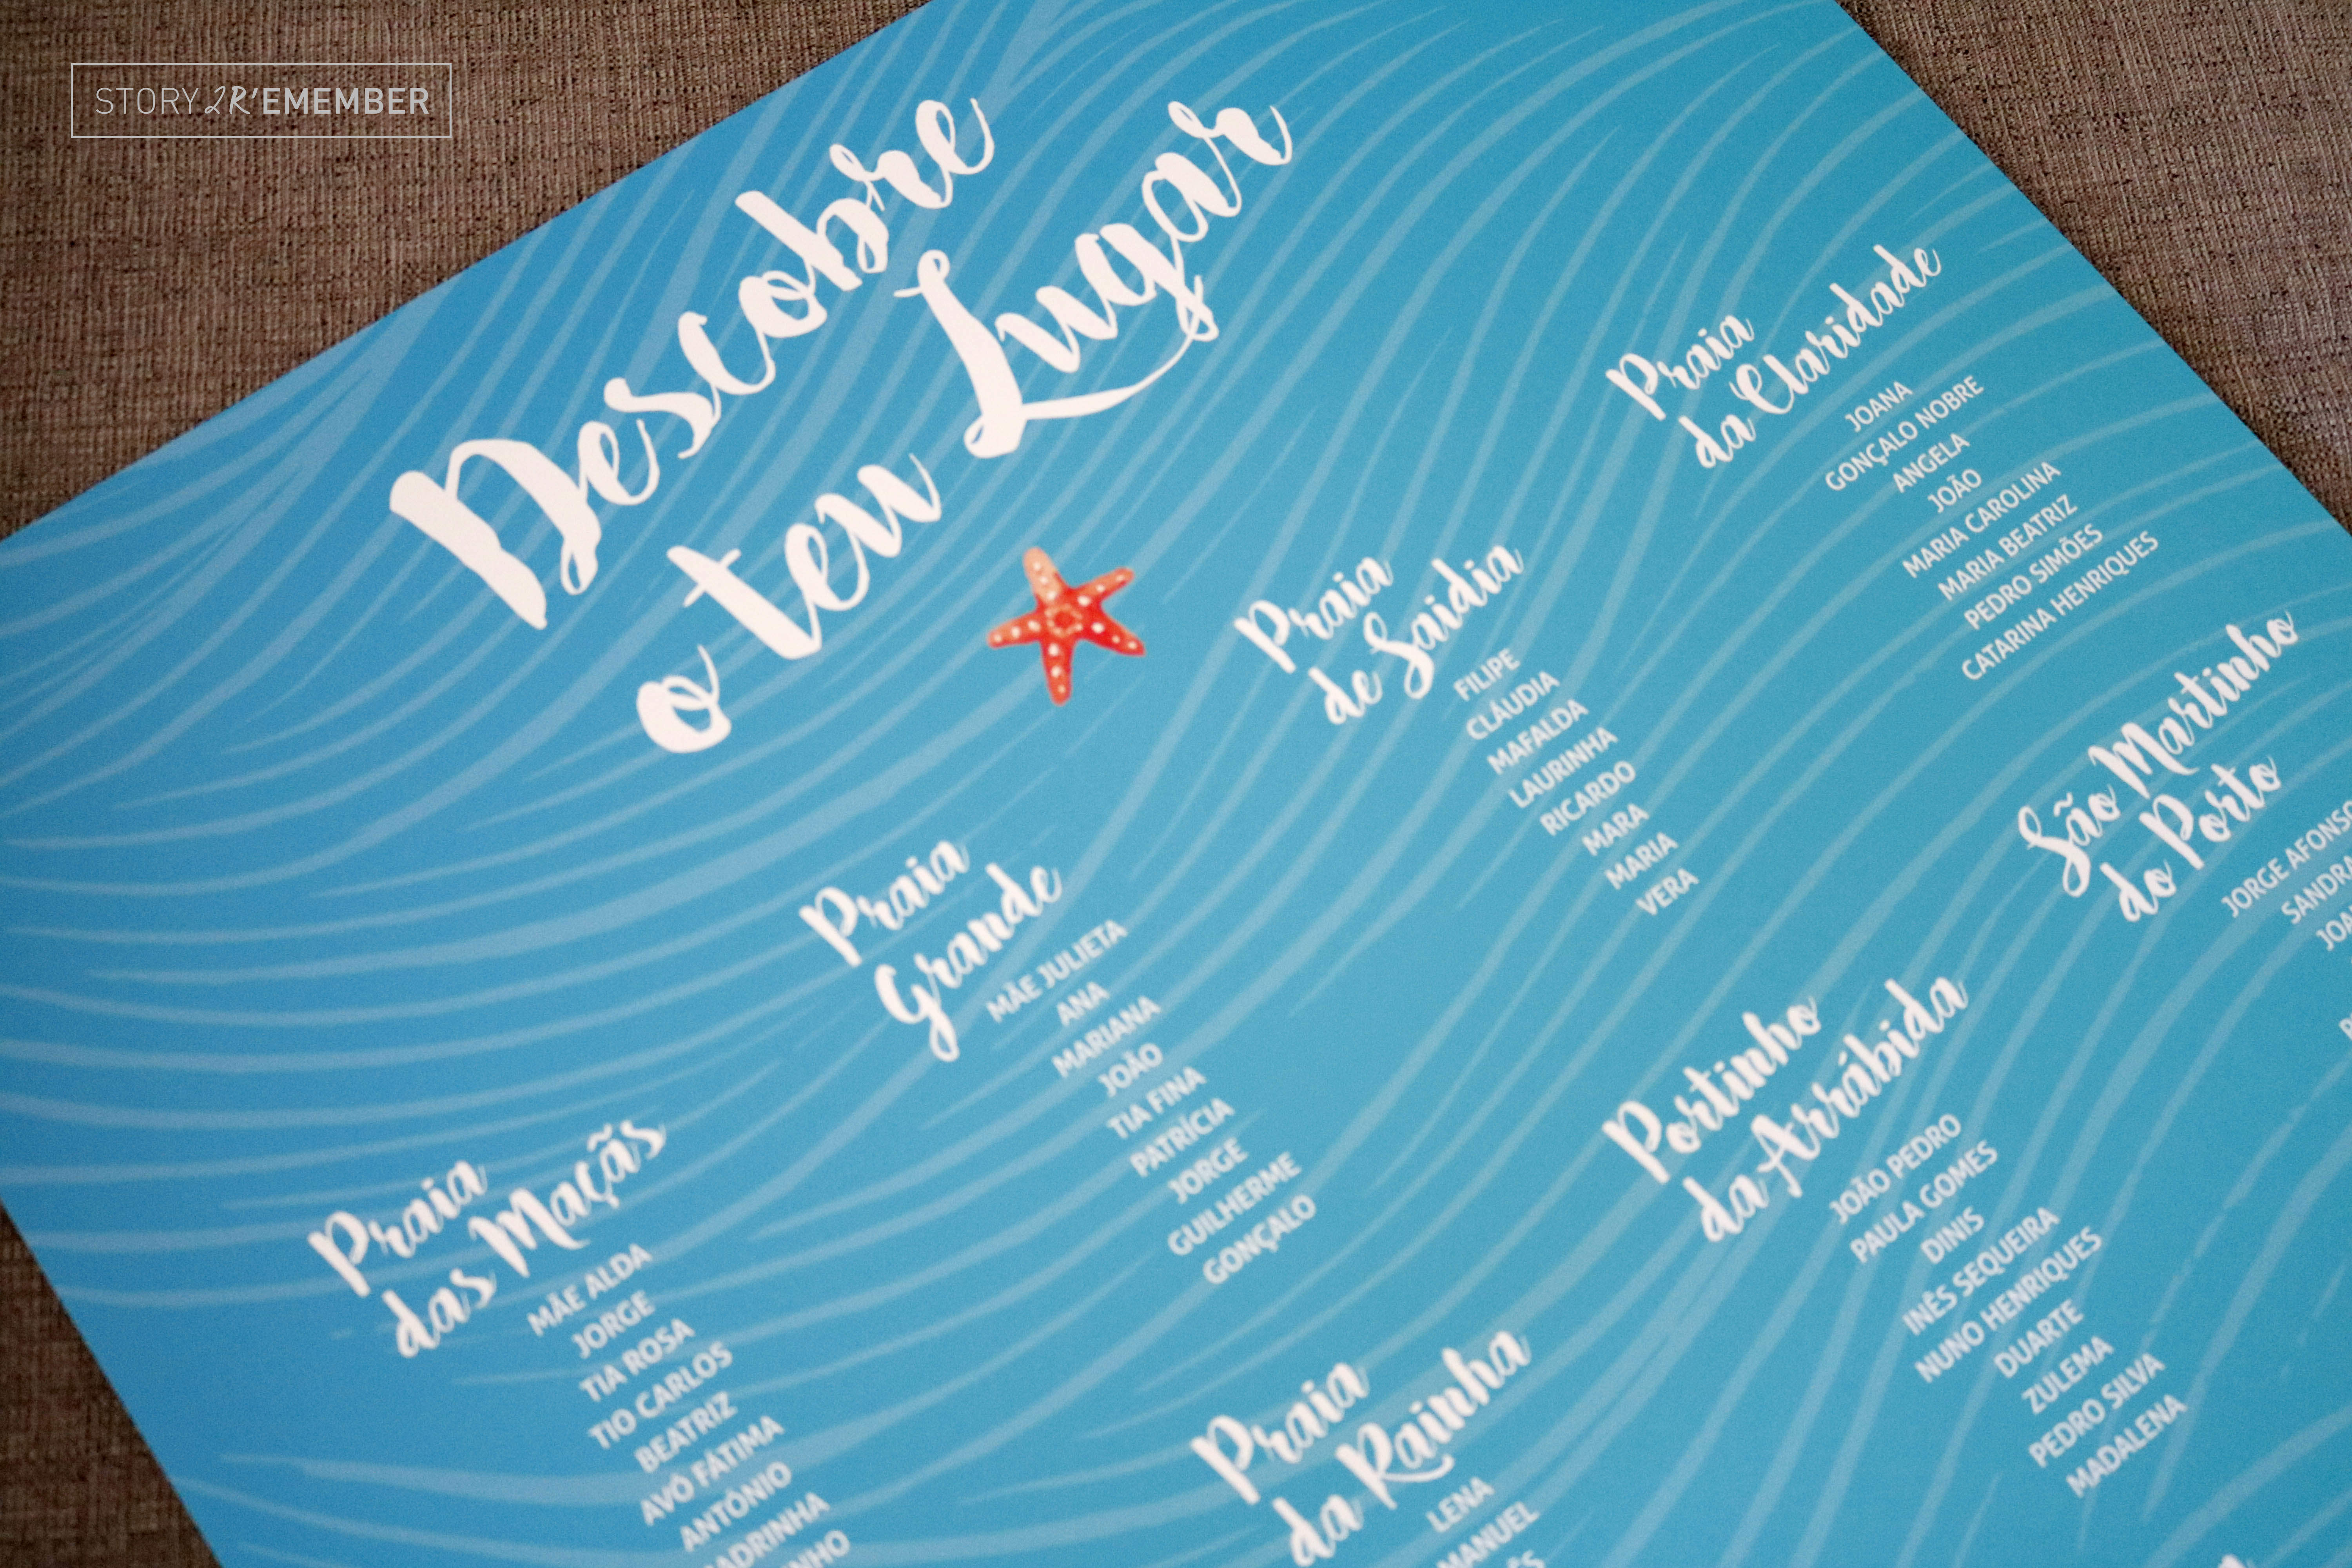 STORY2R'EMEMBER
Descobre
o teu Lugar
Praia
das Maçãs
MÃE ALDA
JORGE
TIA ROSA
TIO CARLOS
BEATRIZ
AVÓ FÁTIMA
ANTÓNIO
Praia
Grande
MÃE JULIETA
ANA
MARIANA
JOÃO
TIA FINA
PATRÍCIA
JORGE
GUILHERME
GONÇALO
Praia
de Saidia
FILIPE
CLÁUDIA
MAFALDA
LAURINHA
RICARDO
MARA
MARIA
VERA
Praia
da Claridade
JOANA
GONÇALO NOBRE
ANGELA
JOÃO
MARIA CAROLINA
MARIA BEATRIZ
PEDRO SIMÕES
CATARINA HENRIQUES
Praia
da Rainha
LENA
MANUEL
Portinho
da Arrábida
JOÃO PEDRO
PAULA GOMES
DINIS
INÊS SEQUEIRA
NUNO HENRIQUES
DUARTE
ZULEMA
PEDRO SILVA
MADALENA
São Martinho
do Porto
JORGE AFONSO
SANDRA